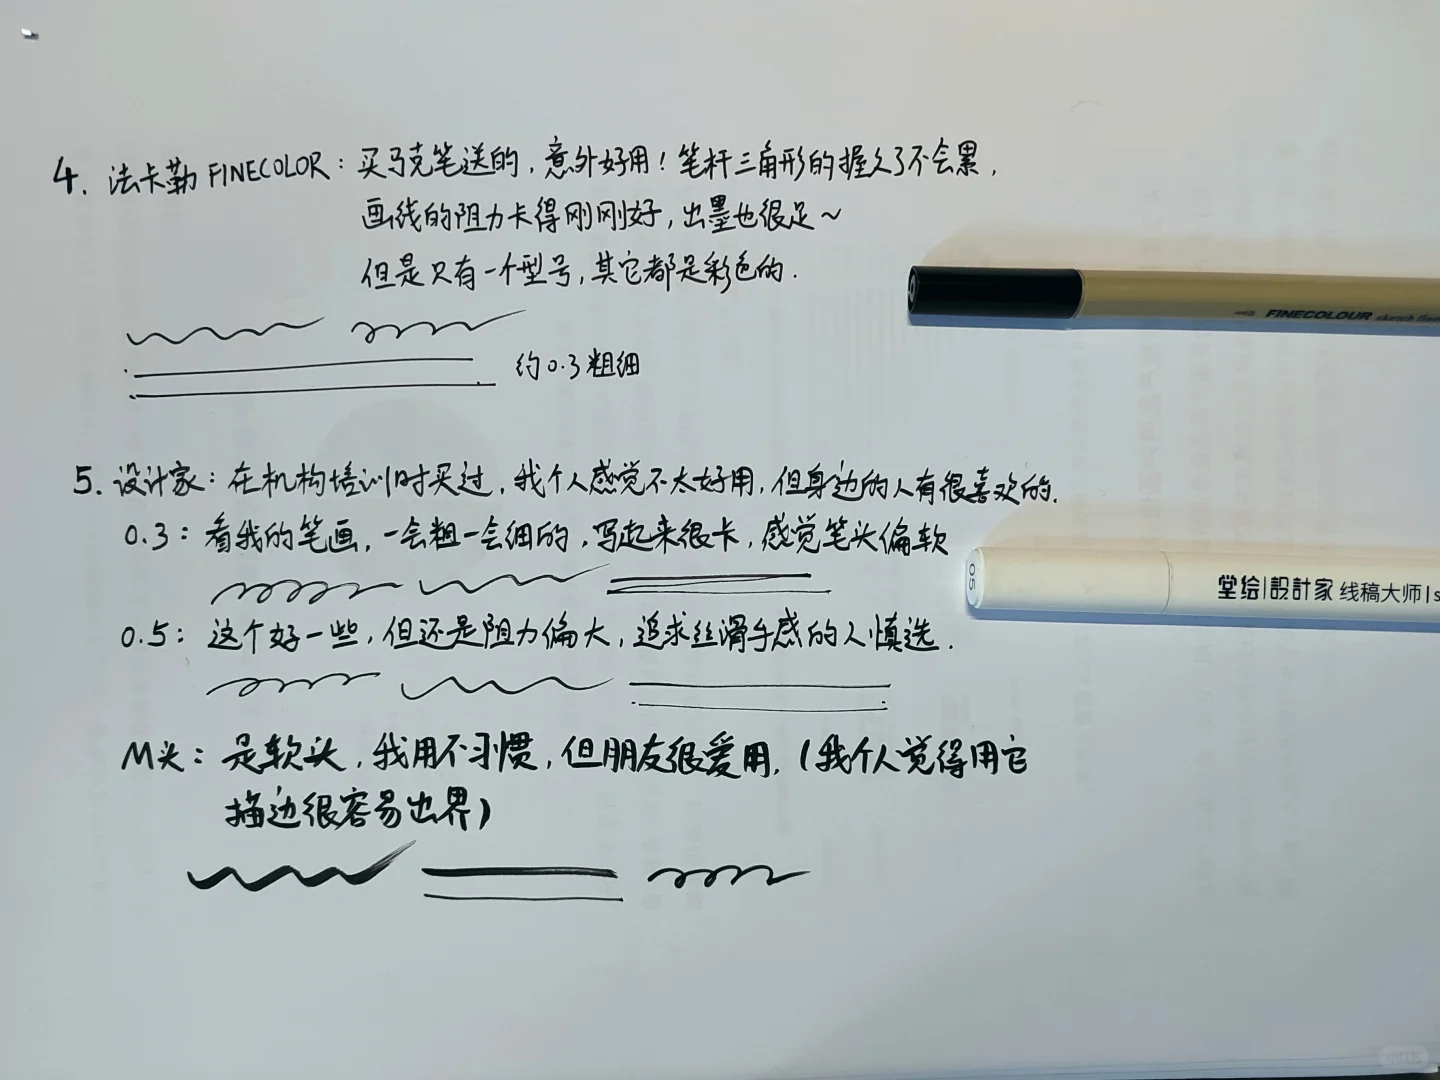 4. 法卡勒 FINECOLOR：买马克笔送的，意外好用！笔杆三角形的握久了不会累，
画线的阻力卡得刚刚好，出墨也很足~
但是只有一个型号，其它都是彩色的.
FINECOLOUR sketch fine
约0.3粗细
5. 设计家：在机构培训时买过，我个人感觉不太好用，但身边的人有很喜欢的.
0.3：看我的笔画，一会粗一会细的，写起来很卡，感觉笔头偏软
05
堂绘|設計家 线稿大师|s
0.5：这个好一些，但还是阻力偏大，追求丝滑手感的人慎选.
M头：是软头，我用不习惯，但朋友很爱用，（我个人觉得用它
描边很容易出界）
小红书